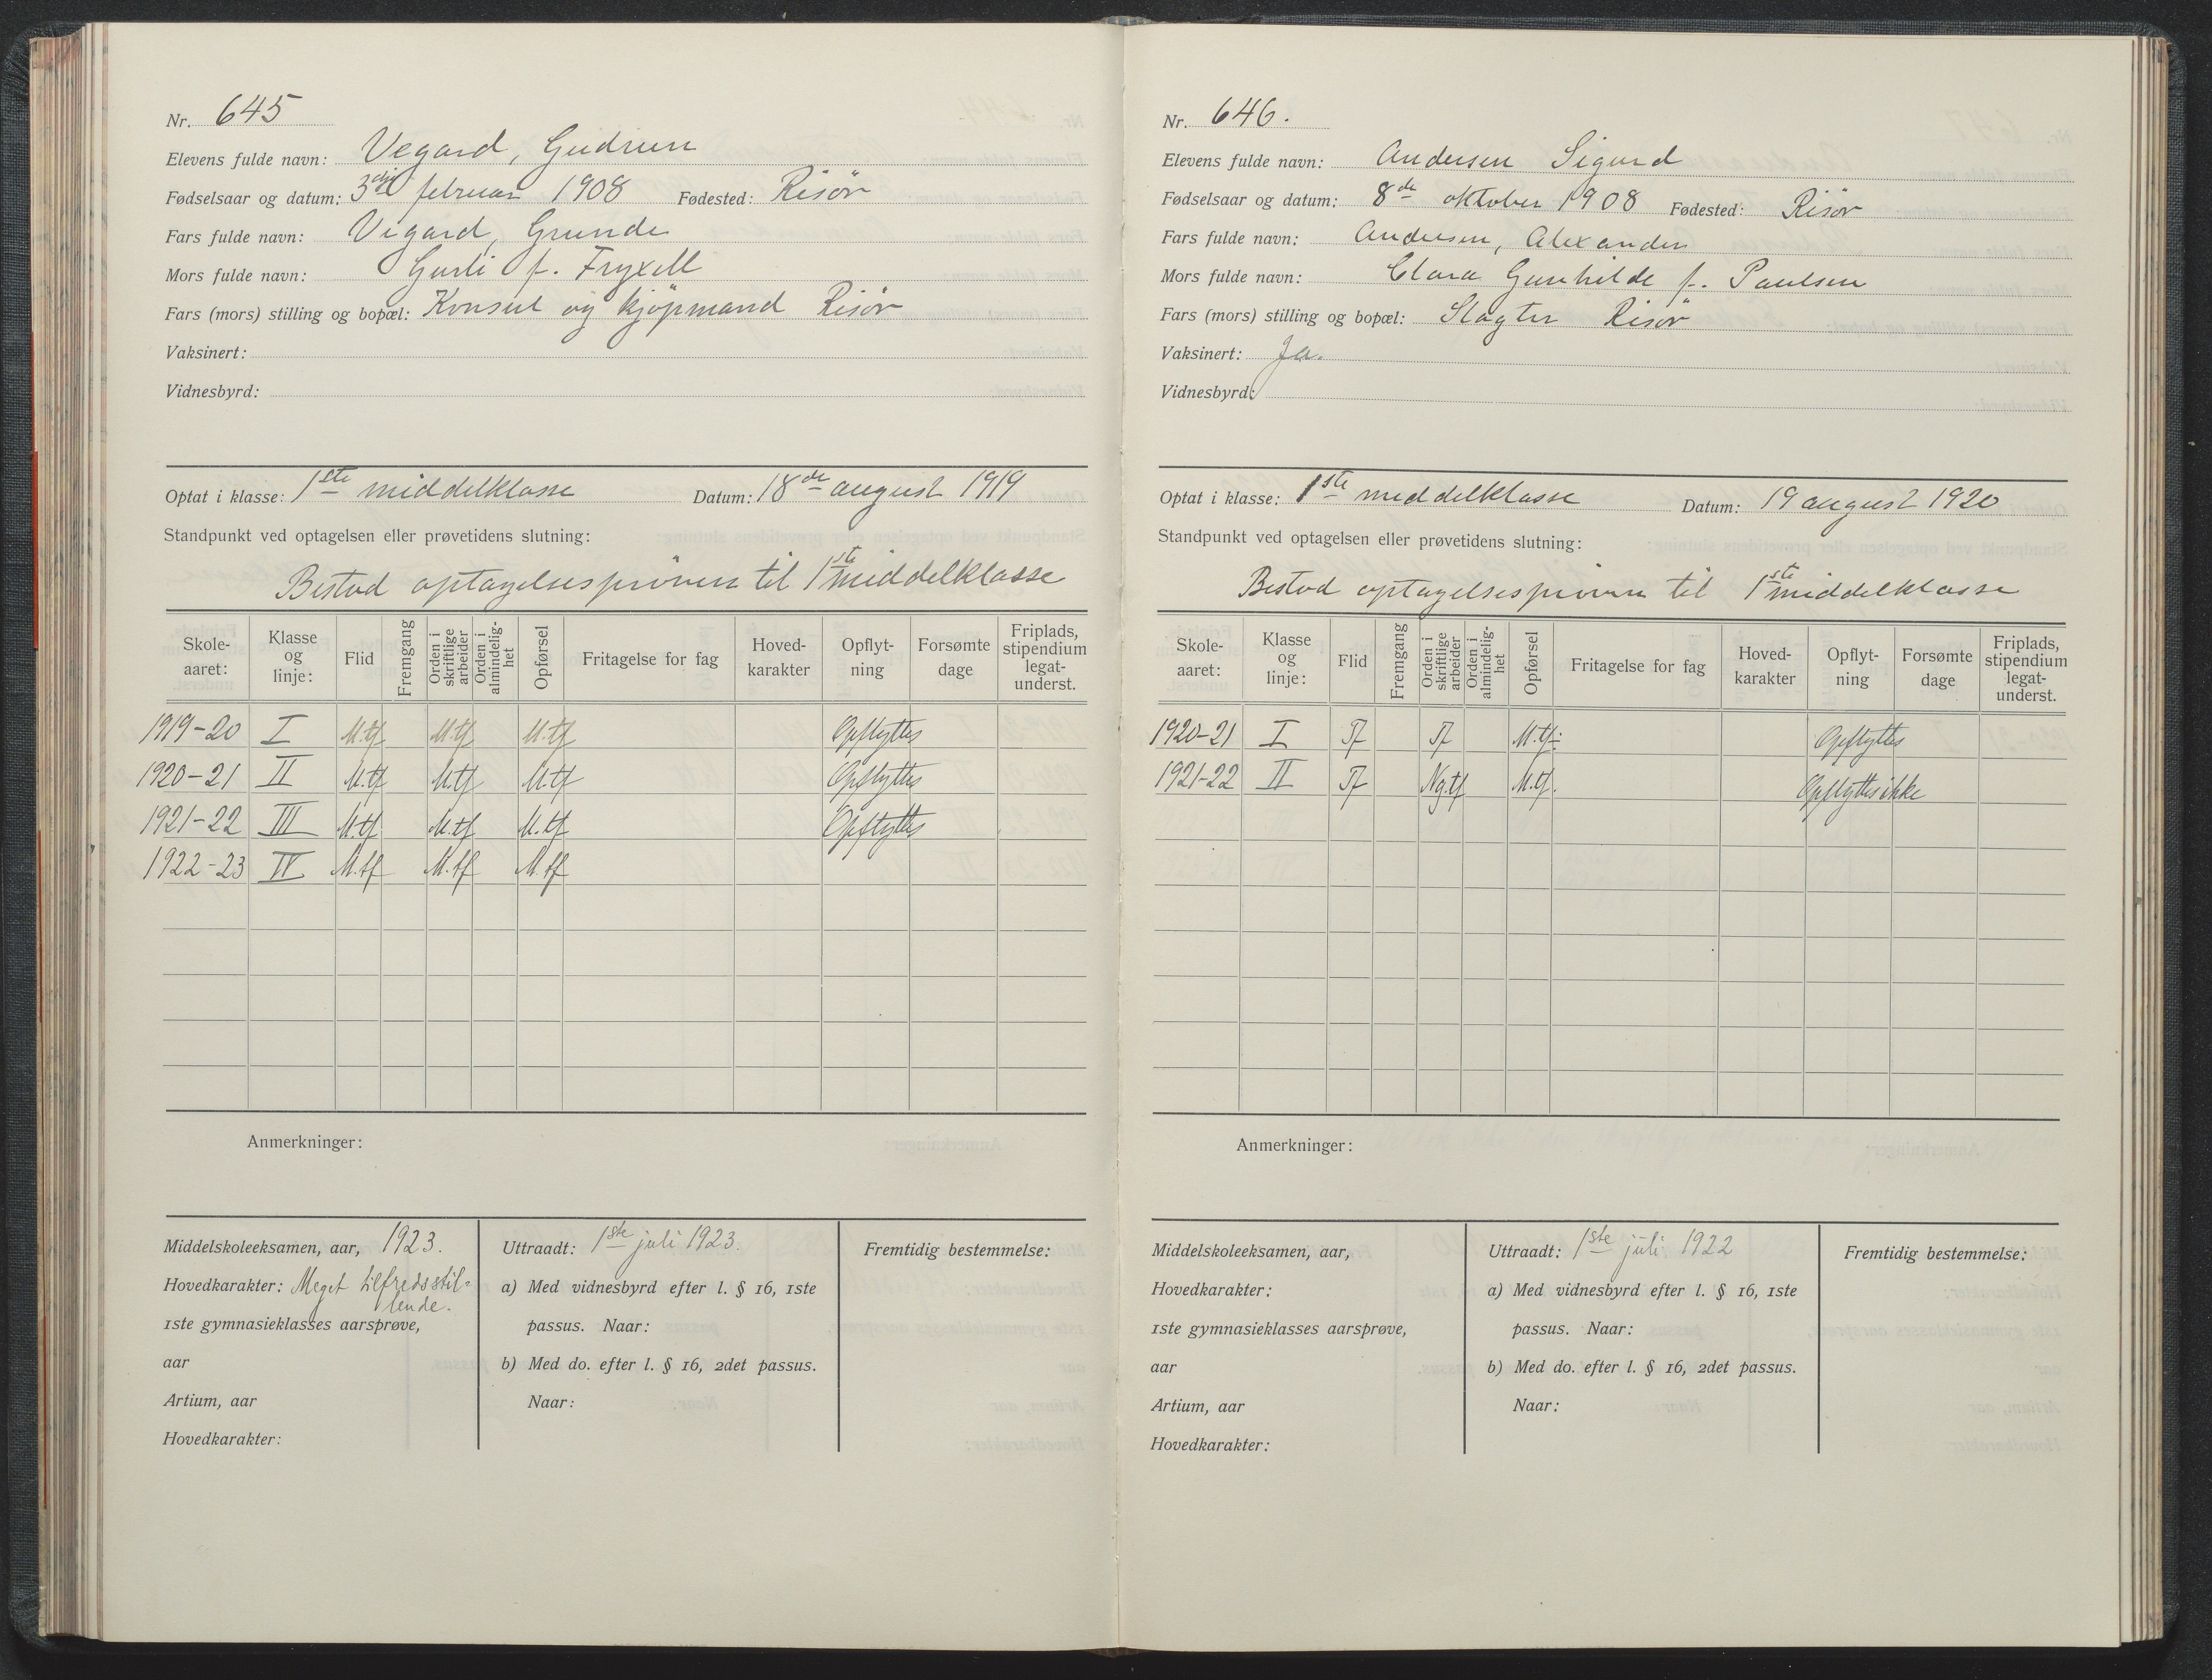 Nr. 645
Elevens fulde navn: Vegard, Gudrun
Fødselsaar og datum: 3dje februar 1908 Fødested: Risör
Fars fulde navn: Vigard, Grunde
Mors fulde navn: Gurli f. Fryxell
Fars (mors) stilling og bopæl: Konsul og kjöpmand Risör
Vaksinert:
Vidnesbyrd:
Optat i klasse: 1ste middelklasse Datum: 18de august 1919
Standpunkt ved optagelsen eller prøvetidens slutning:
Bestod optagelsespröven til 1ste middelklasse
Skole-aaret: Klasse og linje: Flid Fremgang Orden i skriftlige arbeider Orden i almindelig-het Opførsel Fritagelse for fag Hoved-karakter Opflyt-ning Forsømte dage Friplads, stipendium legat-underst.
1919-20 I M.tf M.tf M.tf Opflyttes
1920-21 II M.tf M.tf M.tf Opflyttes
1921-22 III M.tf M.tf M.tf Opflyttes
1922-23 IV M.tf M.tf M.tf
Anmerkninger:
Middelskoleeksamen, aar, 1923.
Hovedkarakter: Meget tilfredsstil-
lende.
1ste gymnasieklasses aarsprøve,
aar
Artium, aar
Hovedkarakter:
Uttraadt: 1ste juli 1923.
a) Med vidnesbyrd efter l. § 16, 1ste
passus. Naar:
b) Med do. efter l. § 16, 2det passus.
Naar:
Fremtidig bestemmelse:
Nr. 646.
Elevens fulde navn: Andersen Sigurd
Fødselsaar og datum: 8de oktober 1908 Fødested: Risör
Fars fulde navn: Andersen, Alexander
Mors fulde navn: Clara Gunhilde f. Paulsen
Fars (mors) stilling og bopæl: Slagter Risör
Vaksinert: Ja.
Vidnesbyrd:
Optat i klasse: 1ste middelklasse Datum: 19 august 1920
Standpunkt ved optagelsen eller prøvetidens slutning:
Bestod optagelsespröven til 1ste middelklasse
Skole-aaret: Klasse og linje: Flid Fremgang Orden i skriftlige arbeider Orden i almindelig-het Opførsel Fritagelse for fag Hoved-karakter Opflyt-ning Forsømte dage Friplads, stipendium legat-underst.
1920-21 I Tf Tf M.tf. Opflyttes
1921-22 II Tf Ng.tf M.tf. Opflyttes ikke
Anmerkninger:
Middelskoleeksamen, aar,
Hovedkarakter:
1ste gymnasieklasses aarsprøve,
aar
Artium, aar
Hovedkarakter:
Uttraadt: 1ste juli 1922
a) Med vidnesbyrd efter l. § 16, 1ste
passus. Naar:
b) Med do. efter l. § 16, 2det passus.
Naar:
Fremtidig bestemmelse: